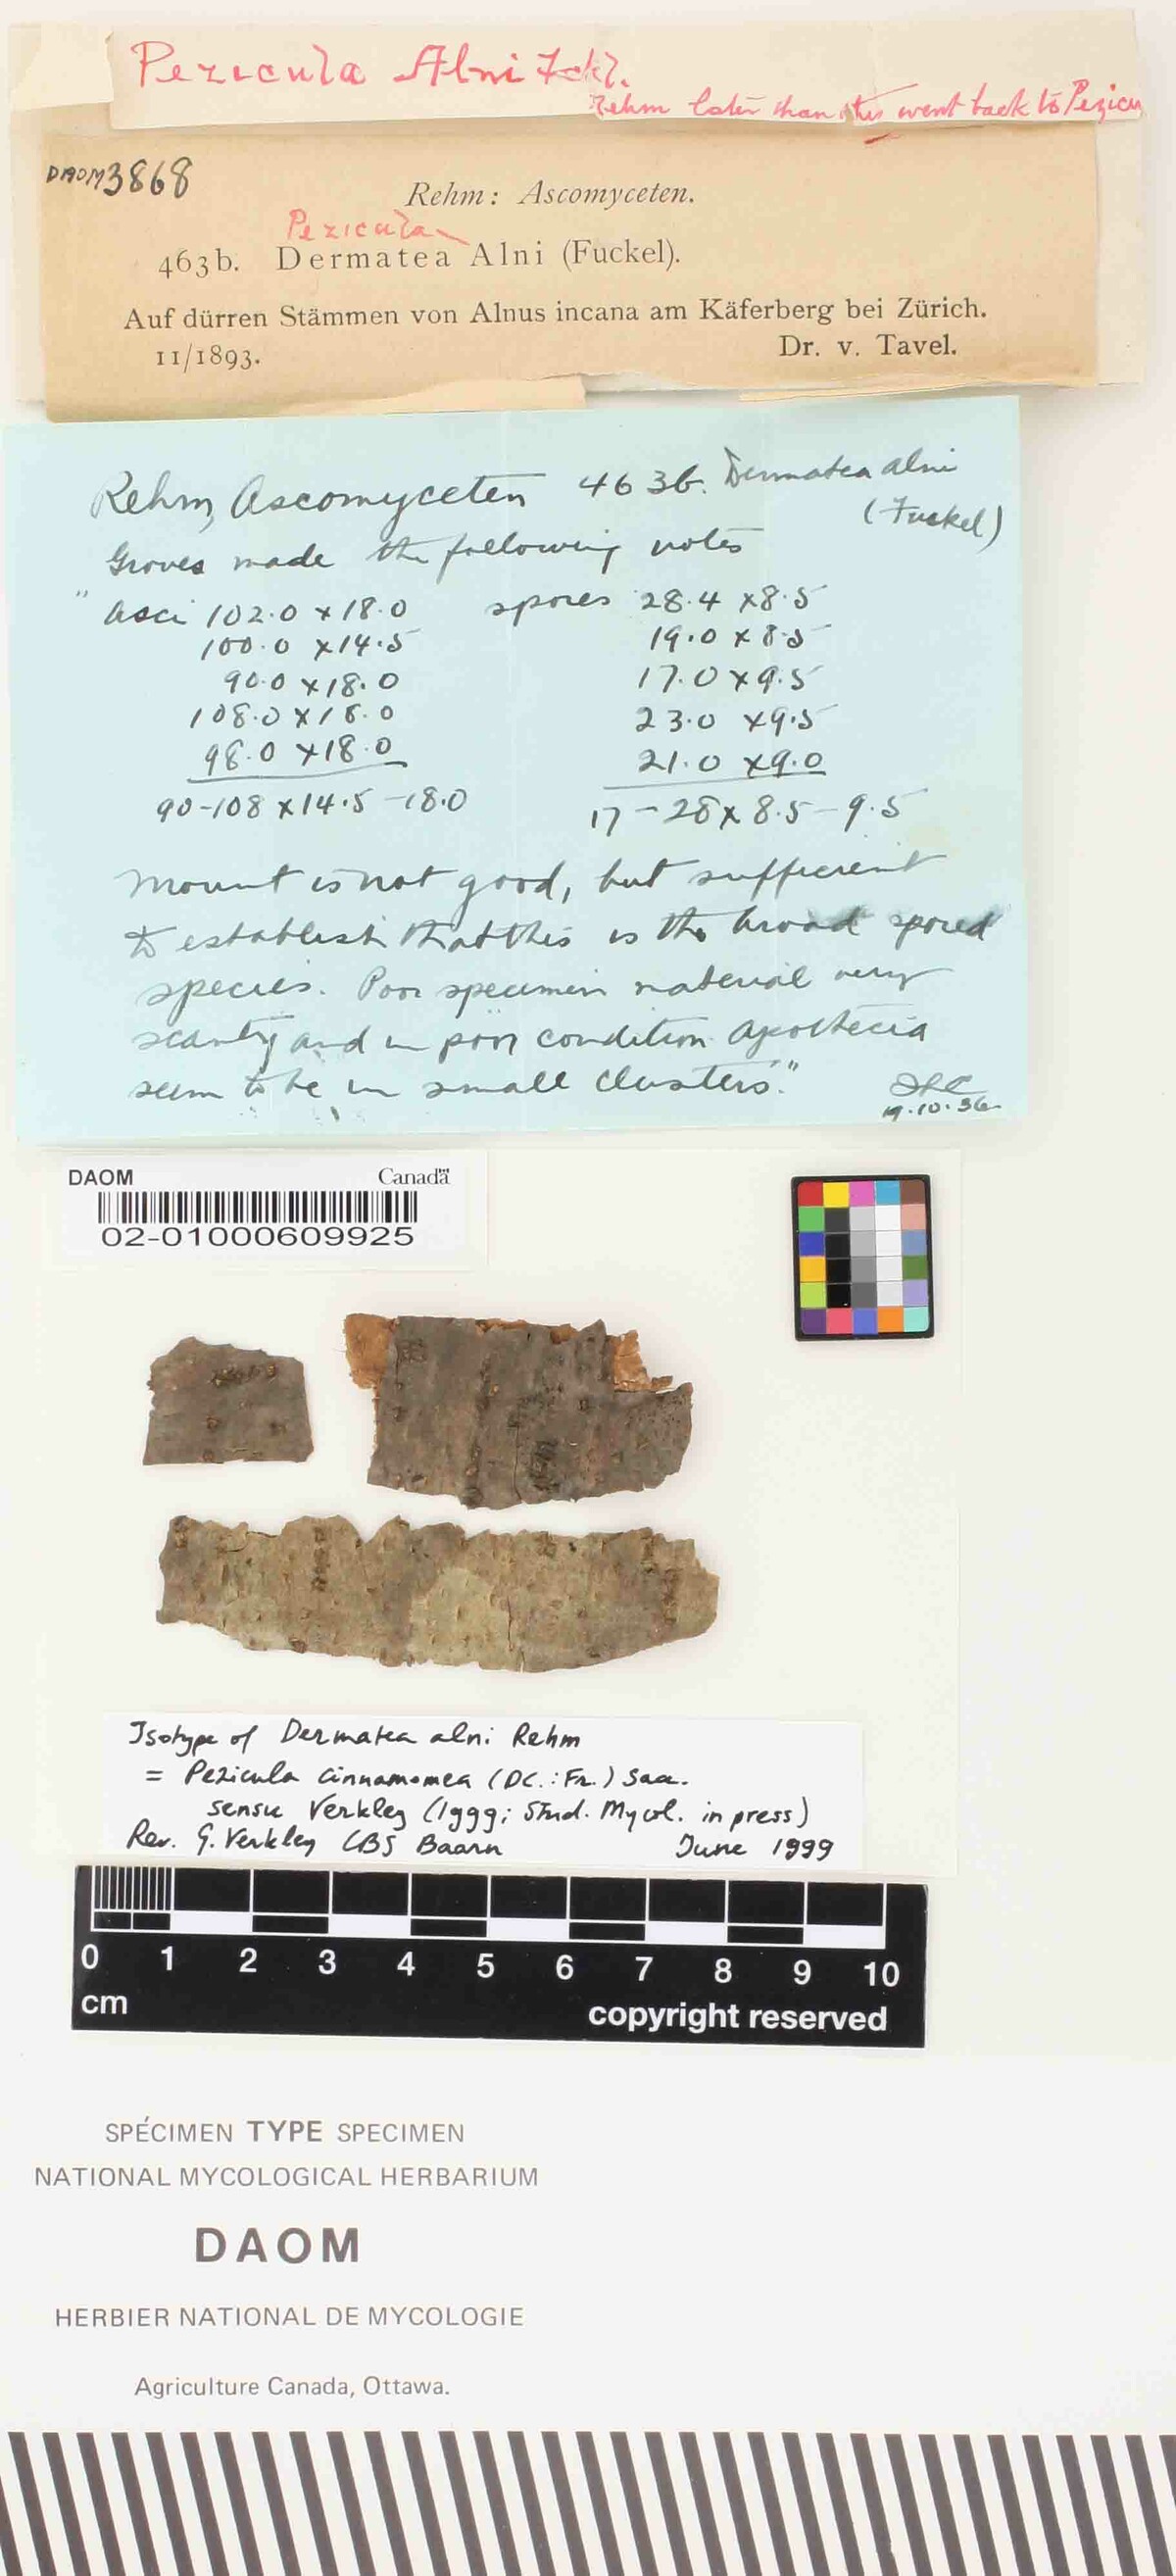 Pezicula Alni Fckl.
Rehm later than this went back to Pezicu
DAOM 3868
Rehm: Ascomyceten.
Pezicula
463b. Dermatea Alni (Fuckel).
Auf dürren Stämmen von Alnus incana am Käferberg bei Zürich.
11/1893. Dr. v. Tavel.
Rehm, Ascomyceten 463b. Dermatea alni
(Fuckel)
Groves made the following notes
"Asci 102.0 x 18.0 spores 28.4 x 8.5
100.0 x 14.5 19.0 x 8.5
90.0 x 18.0 17.0 x 9.5
108.0 x 18.0 23.0 x 9.5
98.0 x 18.0 21.0 x 9.0
90-108 x 14.5-18.0 17-28 x 8.5-9.5
Mount is not good, but sufficient
to establish that this is the broad spored
species. Poor specimen material very
scanty and in poor condition. Apothecia
seem to be in small clusters."
19.10.36
DAOM Canada
02-01000609925
Isotype of Dermatea alni Rehm
= Pezicula cinnamomea (DC.:Fr.) Sacc.
sensu Verkley (1999; Stud. Mycol. in press)
Rev. G. Verkley CBS Baarn June 1999
0 1 2 3 4 5 6 7 8 9 10
cm copyright reserved
SPÉCIMEN TYPE SPECIMEN
NATIONAL MYCOLOGICAL HERBARIUM
DAOM
HERBIER NATIONAL DE MYCOLOGIE
Agriculture Canada, Ottawa.